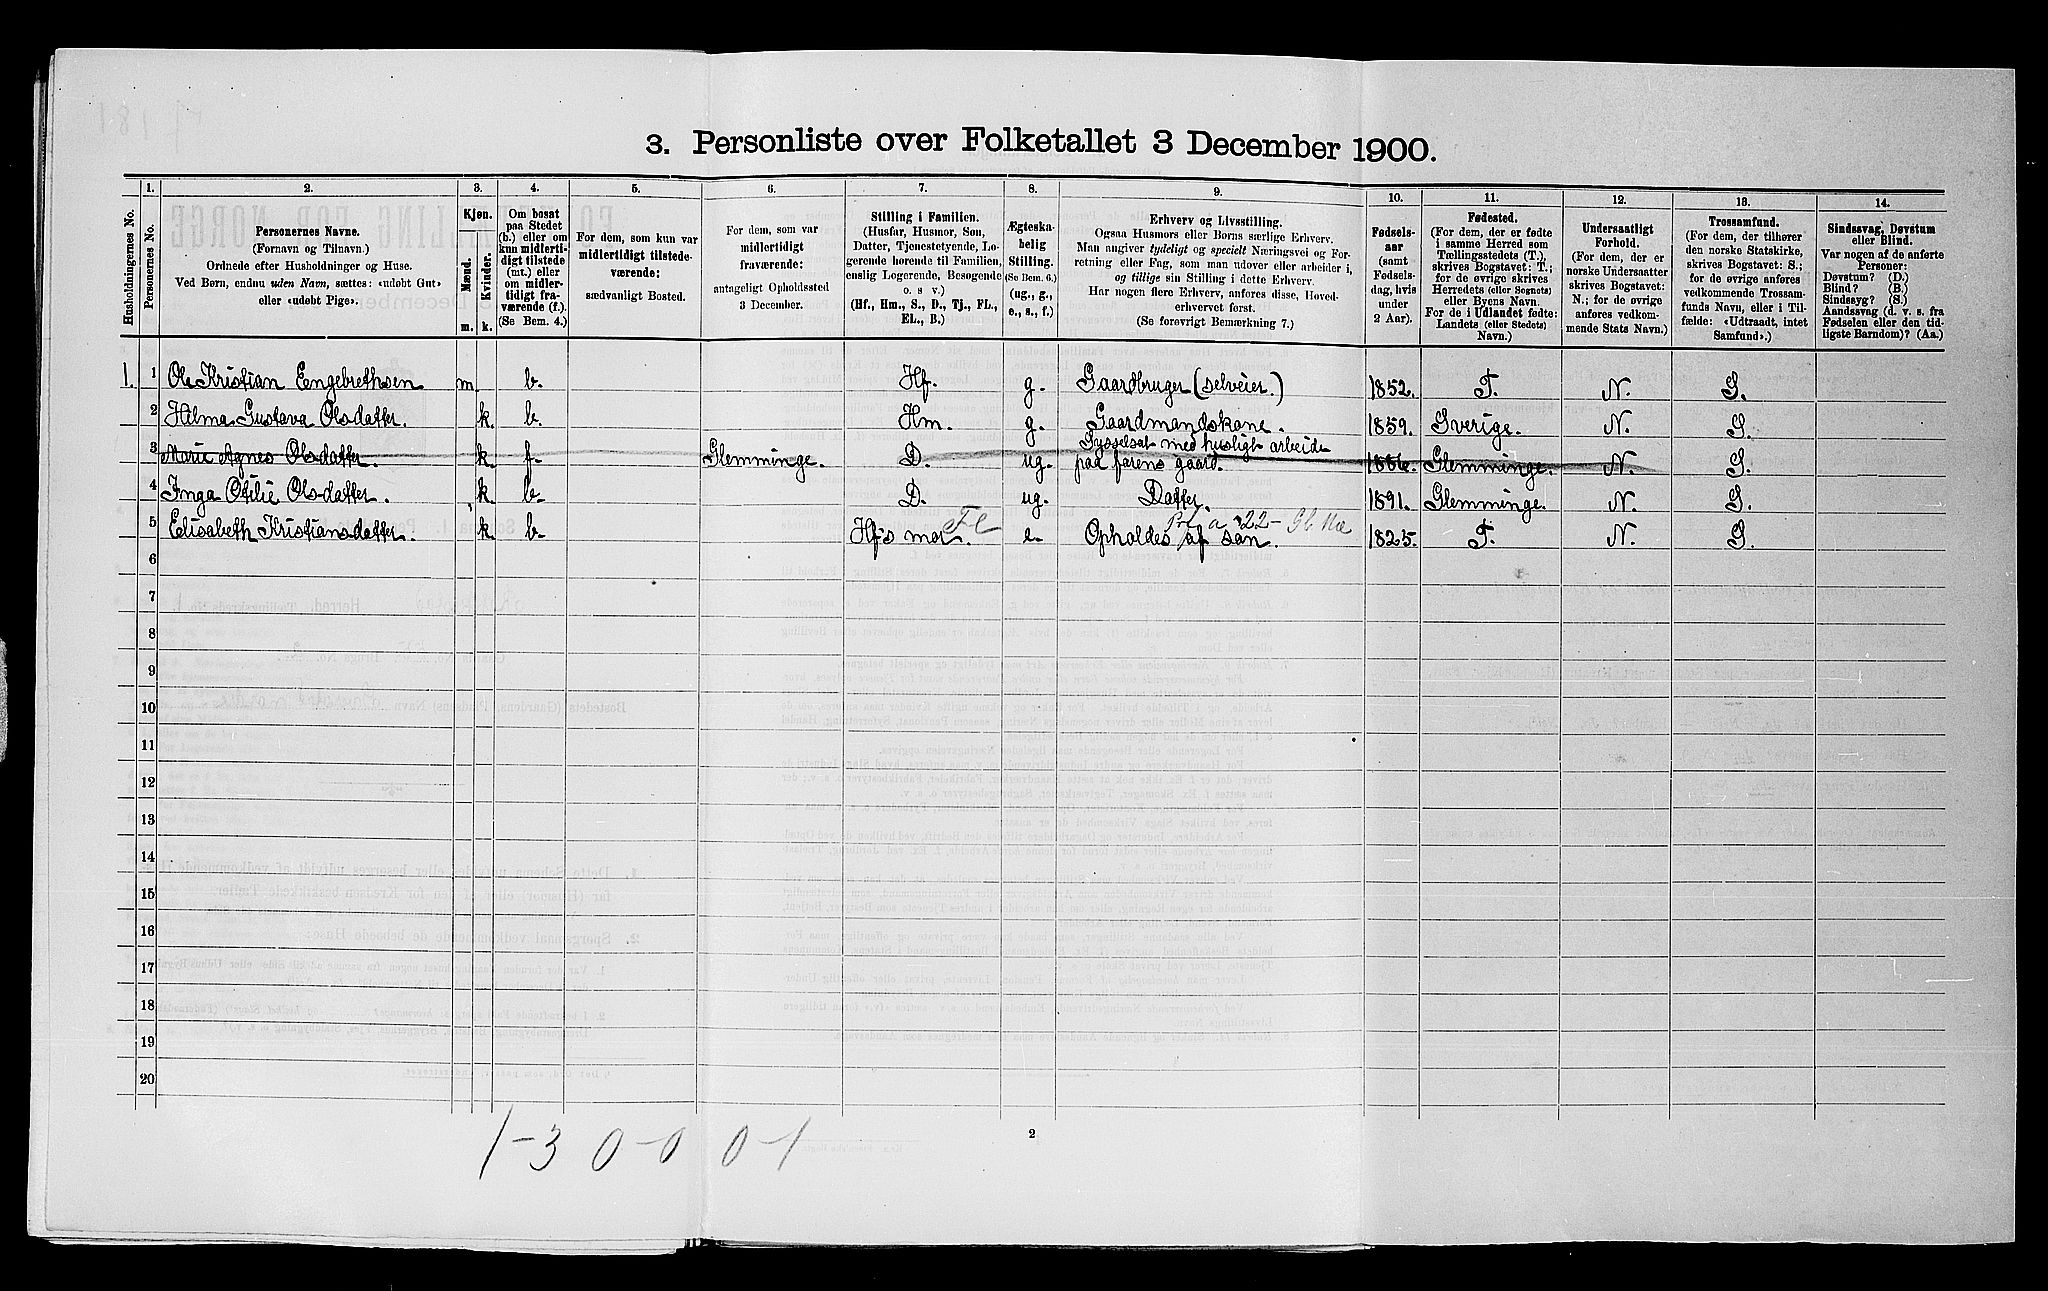 3. Personliste over Folketallet 3 December 1900.
Husholdningernes No.
1.
Personernes No.
2.
Personernes Navne.
(Fornavn og Tilnavn.)
Ordnede efter Husholdninger og Huse.
Ved Børn, endnu uden Navn, sættes: «udøbt Gut»
eller «udøbt Pige».
3.
Kjøn.
Mænd.
Kvinder.
m.
k.
4.
Om bosat
paa Stedet
(b.) eller om
kun midlerti-
digt tilstede
(mt.) eller
om midler-
tidigt fra-
værende (f.).
(Se Bem. 4.)
5.
For dem, som kun var
midlertidigt tilstede-
værende:
sædvanligt Bosted.
6.
For dem, som var
midlertidigt
fraværende:
antageligt Opholdssted
3 December.
7.
Stilling i Familien.
(Husfar, Husmor, Søn,
Datter, Tjenestetyende, Lo-
gerende hørende til Familien,
enslig Logerende, Besøgende
o. s v.)
(Hf., Hm., S., D., Tj., FL.,
EL., B.)
8.
Ægteska-
belig
Stilling.
(Se Bem. 6.)
(ug., g.,
e., s., f.)
9.
Erhverv og Livsstilling.
Ogsaa Husmors eller Børns særlige Erhverv.
Man angiver tydeligt og specielt Næringsvei og For-
retning eller Fag, som man udøver eller arbeider i,
og tillige sin Stilling i dette Erhverv.
Har nogen flere Erhverv, anføres disse, Hoved-
erhvervet først.
(Se forøvrigt Bemærkning 7.)
10.
Fødsels-
aar
(samt
Fødsels-
dag, hvis
under
2 Aar).
11.
Fødested.
(For dem, der er fødte
i samme Herred som
Tællingsstedets (T.),
skrives Bogstavet: T.;
for de øvrige skrives
Herredets (eller Sognets)
eller Byens Navn.
For de i Udlandet fødte:
Landets (eller Stedets)
Navn.)
12.
Undersaatligt
Forhold.
(For dem, der er
norske Undersaatter
skrives Bogstavet:
N.; for de øvrige
anføres vedkom-
mende Stats Navn.)
13.
Trossamfund.
(For dem, der tilhører
den norske Statskirke,
skrives Bogstavet: S.;
for de øvrige anføres
vedkommende Trossam-
funds Navn, eller i Til-
fælde: «Udtraadt, intet
Samfund».)
14.
Sindssvag, Døvstum
eller Blind.
Var nogen af de anførte
Personer:
Døvstum? (D.)
Blind? (B.)
Sindssyg? (S.)
Aandssvag (d. v. s. fra
Fødselen eller den tid-
ligste Barndom)? (Aa.)
1. 1 Ole Kristian Engebrethsen m. b. Hf. g. Gaardbruger (selveier.) 1852. T. N. S.
2 Hilma Gustava Olsdatter. k. b. Hm. g. Gaardmandskone. 1859. Sverige. N. S.
3 Marie Agnes Olsdatter. k. f. Glemminge. D. ug. Sysselsat med husligt arbeide
paa farens gaard. Glemminge. N. S.
4 Inga Otilie Olsdatter. k. b. D. ug. Datter. 1891. Glemminge. N. S.
5 Elisabeth Kristiansdatter. k. b. Hf's mor. Fl e. Opholdes af søn. 1825. T. N. S.
6
7
8
9
10
11
12
13
14
15
16
17
18
19
20
1-3 0-0 0-1
2